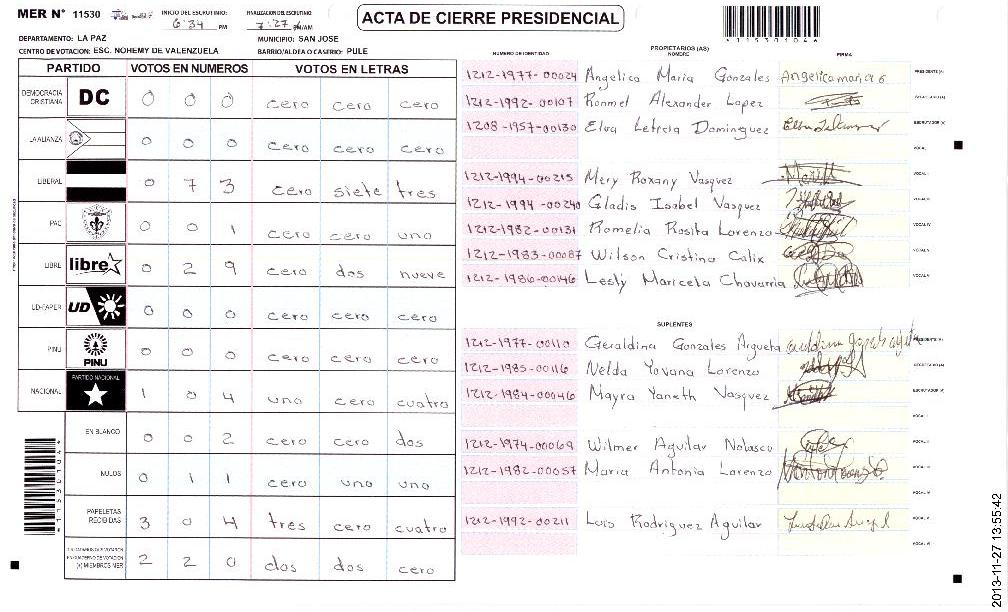 MER N° 11530
INICIO DEL ESCRUTINIO: 6:34 PM
FINALIZACION DEL ESCRUTINIO 7:27 PM/AM
ACTA DE CIERRE PRESIDENCIAL
115301046
DEPARTAMENTO: LA PAZ
MUNICIPIO: SAN JOSE
CENTRO DE VOTACION: ESC. NOHEMY DE VALENZUELA
BARRIO/ALDEA O CASERIO: PULE
PARTIDO VOTOS EN NUMEROS VOTOS EN LETRAS
DEMOCRACIA CRISTIANA DC 0 0 0 cero cero cero
LA ALIANZA 0 0 0 cero cero cero
LIBERAL 0 7 3 cero siete tres
PAC 0 0 1 cero cero uno
LIBRE libre 0 2 9 cero dos nueve
UD-FAPER UD 0 0 0 cero cero cero
PINU PINU 0 0 0 cero cero cero
NACIONAL PARTIDO NACIONAL 1 0 4 uno cero cuatro
EN BLANCO 0 0 2 cero cero dos
NULOS 0 1 1 cero uno uno
PAPELETAS RECIBIDAS 3 0 4 tres cero cuatro
(+) MIEMBROS MER 2 2 0 dos dos cero
NUMERO DE IDENTIDAD
PROPIETARIOS (AS)
NOMBRE
FIRMA
1212-1977-00024 Angelica Maria Gonzales PRESIDENTE (A)
1212-1992-00107 Ronmel Alexander Lopez SECRETARIO (A)
1208-1957-00130 Elva Leticia Dominguez ESCRUTADOR (A)
VOCAL I
1212-1994-00215 Mery Roxany Vasquez VOCAL II
1212-1994-00240 Gladis Isabel Vasquez VOCAL III
1212-1982-00131 Romelia Rosita Lorenzo VOCAL IV
1212-1983-00087 Wilson Cristino Calix VOCAL V
1212-1986-00146 Lesly Maricela Chavarria VOCAL VI
SUPLENTES
1212-1977-00110 Geraldina Gonzales Argueta PRESIDENTE (A)
1212-1985-00116 Nelda Yovana Lorenzo SECRETARIO (A)
1212-1984-00046 Mayra Yaneth Vasquez ESCRUTADOR (A)
VOCAL I
1212-1974-00069 Wilmer Aguilar Nolasco VOCAL II
1212-1982-00057 Maria Antonia Lorenzo VOCAL III
VOCAL IV
1212-1992-00211 Luis Rodriguez Aguilar VOCAL V
VOCAL VI
2013-11-27 13:55:42